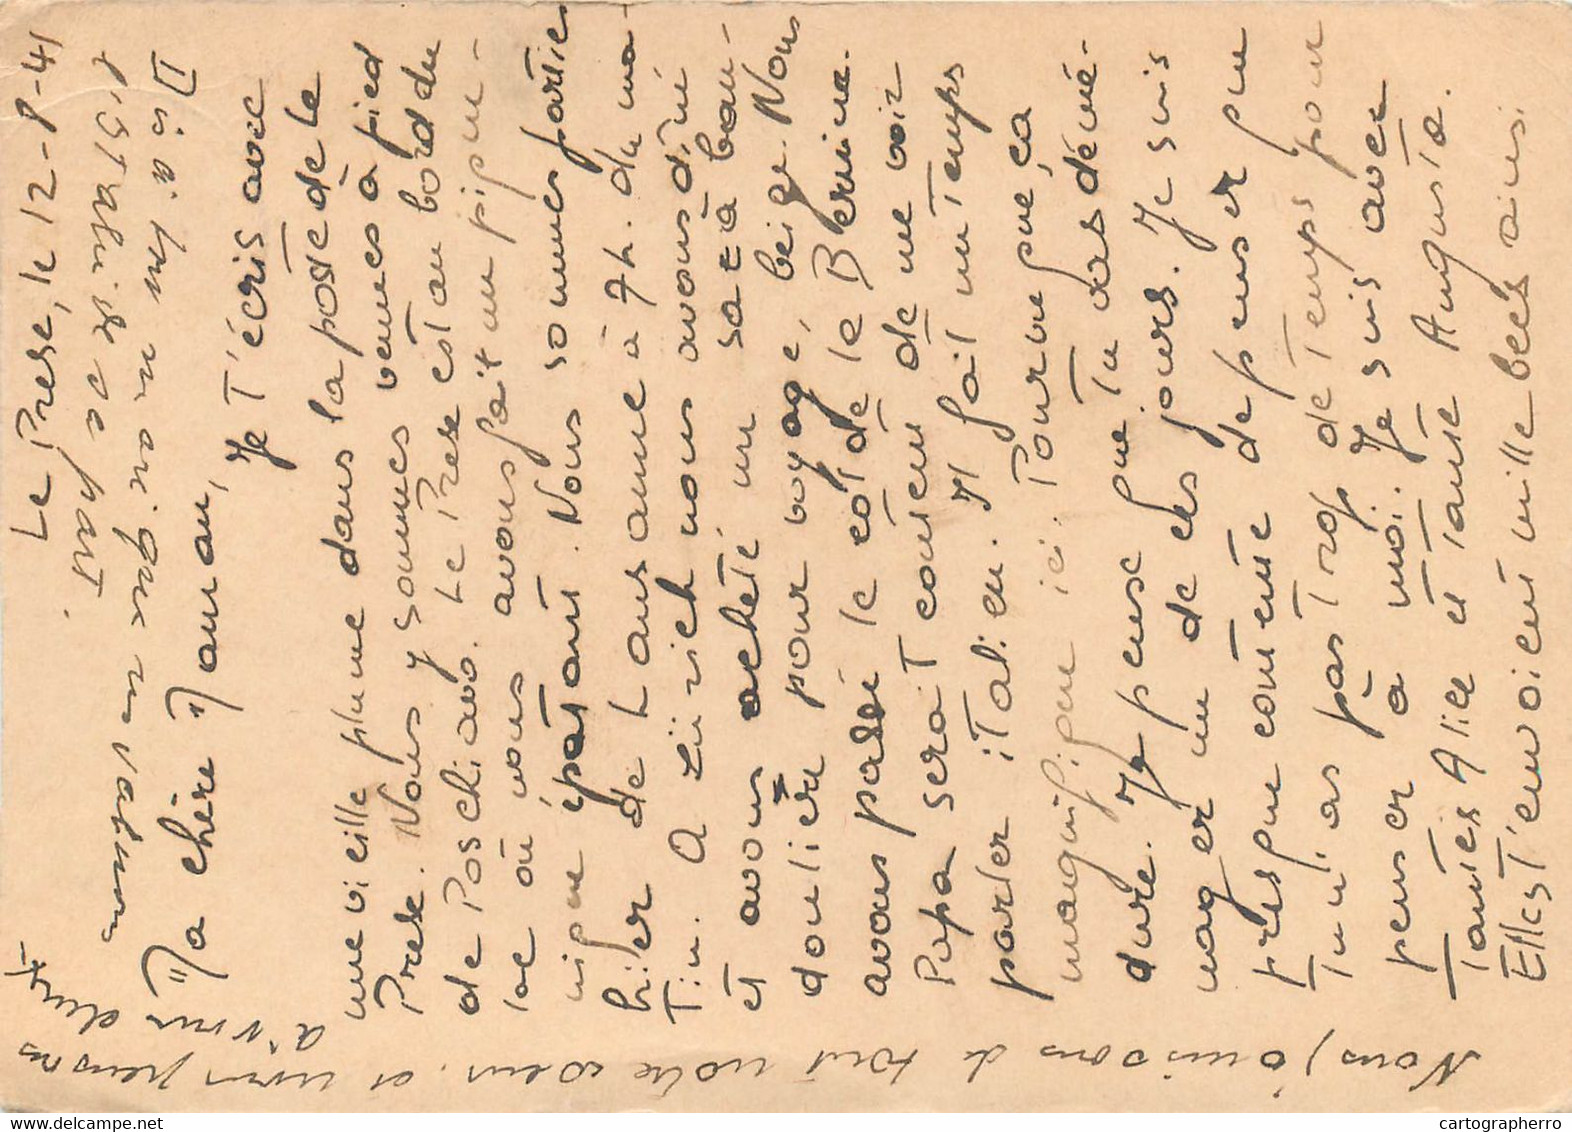 Le Prese, le 12-8-41
Ma chère Maman,
Je t'écris avec
une vieille plume dans la poste de le
Prese. Nous y sommes venues à pied
de Poschiavo. Le Prese est au bord du
lac où nous avons fait un pique-
nique épatant. Nous sommes parties
hier de Lausanne à 7h. du ma-
tin. A Zürich nous avons dîné
et avons acheté un sac à ban-
doulière pour voyage, beige. Nous
avons passé le col de la Bernina.
Papa serait content de me voir
parler italien. Il fait un temps
magnifique ici. Pourvu que ça
dure. Je pense que tu as démé-
nager un de ces jours. Je suis
presque contente de penser que
tu n'as pas trop de temps pour
penser à moi. Je suis avec
tantes Alice et tante Auguste.
Elles t'envoient mille becs ainsi
Nous jouissons de tout notre cœur et nous pensons
à vous
cartographerro